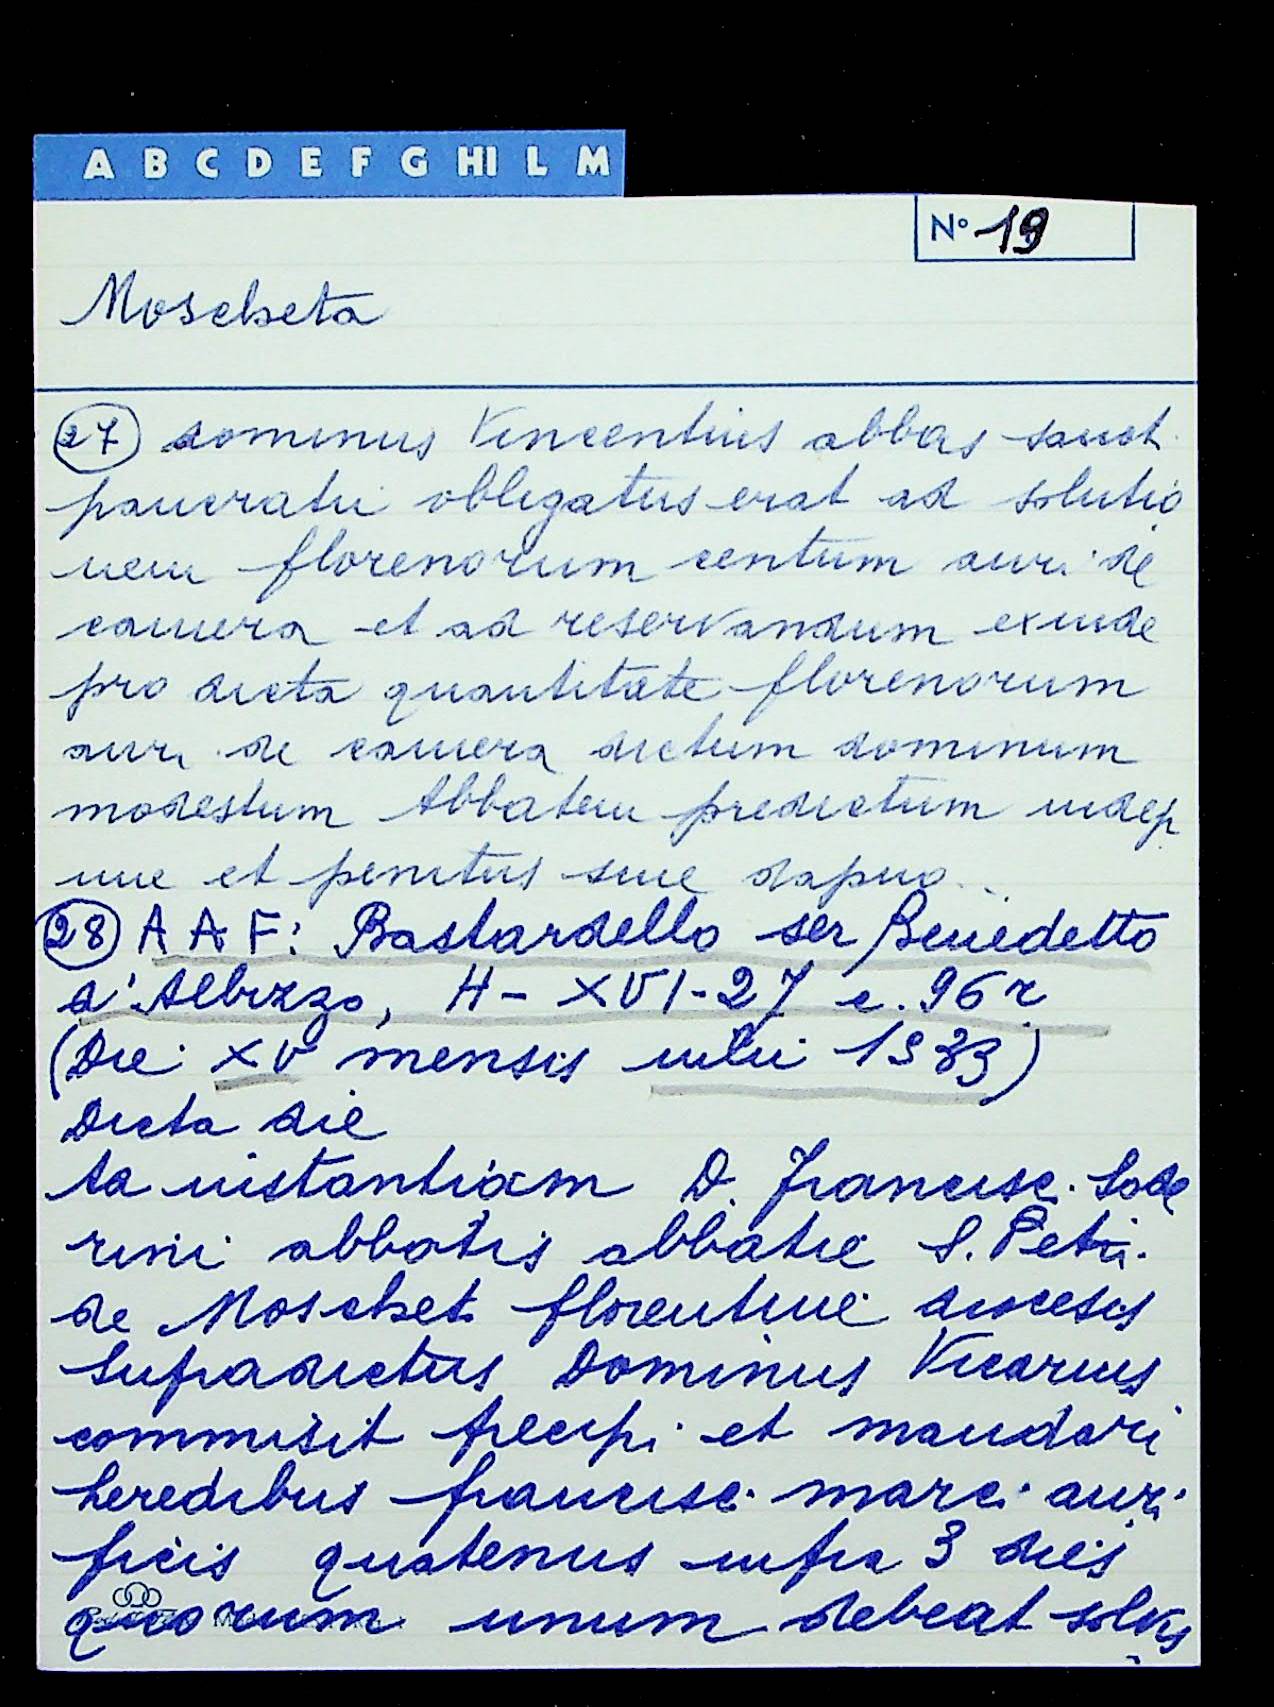 A B C D E F G HI L M
N° 19
Moscheta
27 dominus Vincentius abbas sanct.
pancratii obligatus erat ad solutio
nem florenorum centum auri de
camera et ad reservandum exinde
pro dicta quantitate florenorum
auri de camera dictum dominum
modestum Abbatem predictum indep
ne et penitus sine dapno..
28 A A F: Bastardello ser Benedetto
d'Albizzo, H-XVI-27 c. 96r
(Die XV mensis iulii 1533)
Dicta die
Ad instantiam D. Francisc. Sode
rini abbatis abbatie S. Petri.
de Moschet. florentine diocesis
Supradictus Dominus Vicarius
commisit precipi et mandari
heredibus francisci marci auri
ficis quatenus infra 3 dies
quorum unum debeat